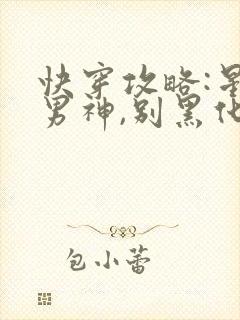 快穿攻略:
男神,别黑化
包小蕾